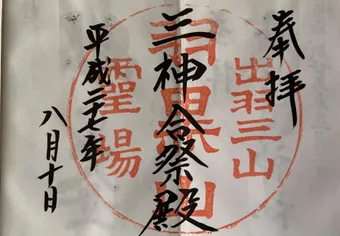 奉拝
出羽三山
三神合祭殿
羽黒山
霊場
平成二七年
八月十日